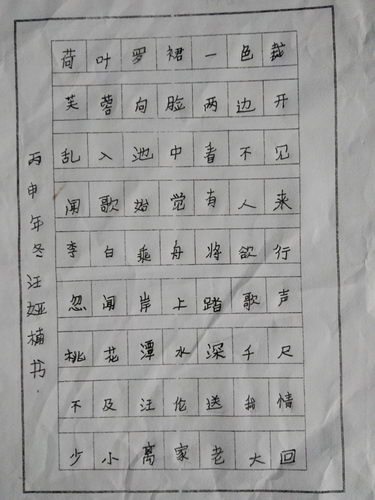 荷叶罗裙一色裁
芙蓉向脸两边开
乱入池中看不见
闻歌始觉有人来
李白乘舟将欲行
忽闻岸上踏歌声
桃花潭水深千尺
不及汪伦送我情
少小离家老大回
丙申年冬汪娅楠书